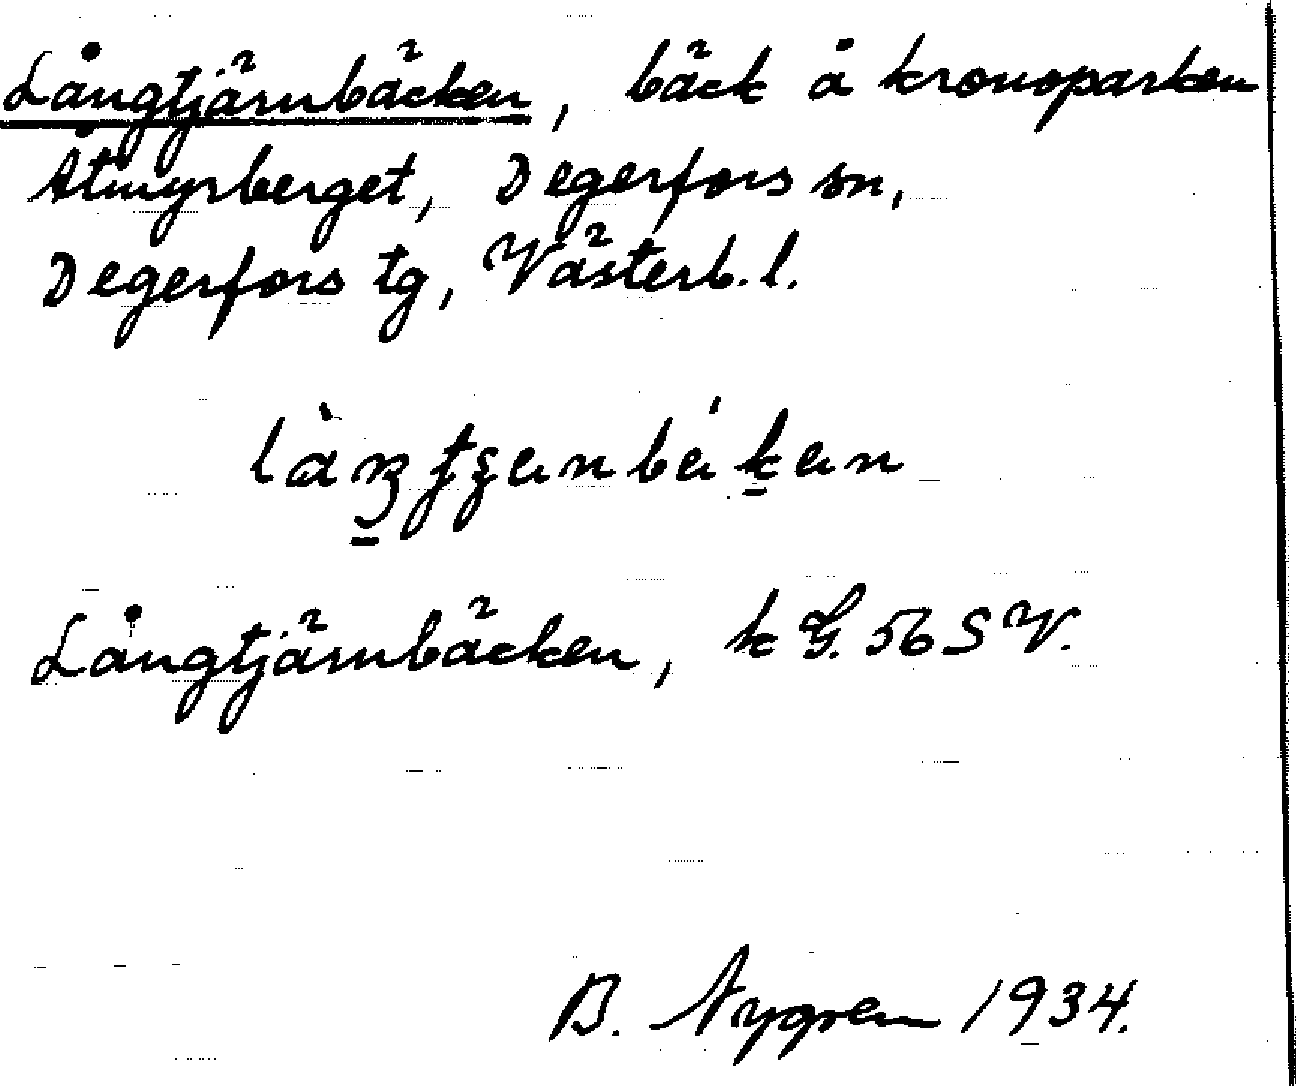 Långtjärnbäcken, bäck å kronoparken
Åtmyrberget, Degerfors sn,
Degerfors tg, Västerb. l.
Långtjärnbäcken, k G. 56 SV.
B. Nygren 1934.